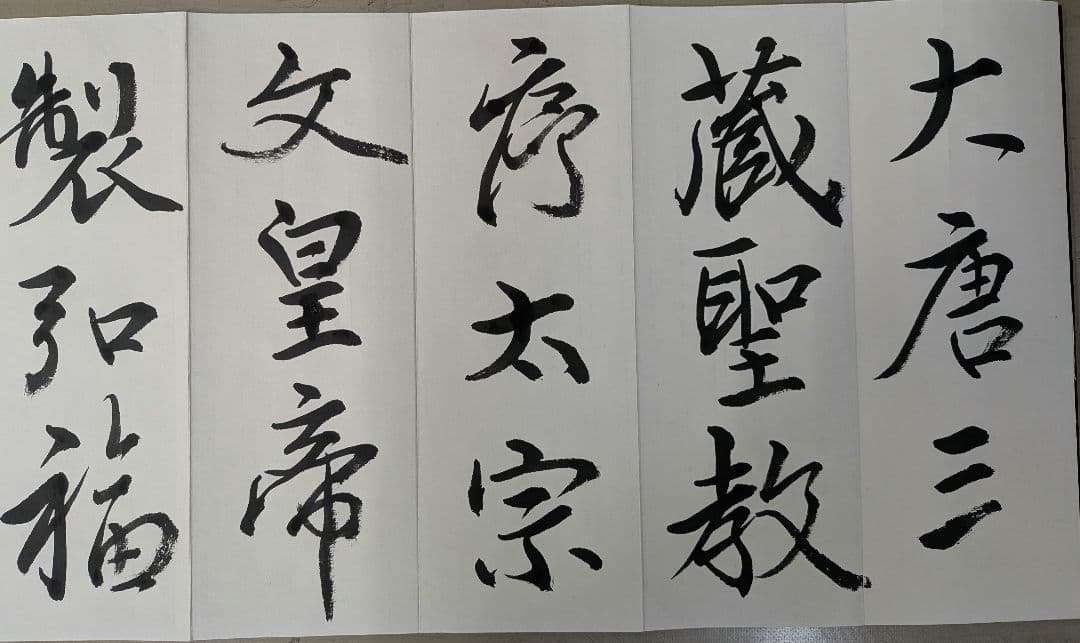 大唐三
藏聖教
序太宗
文皇帝
製弘福